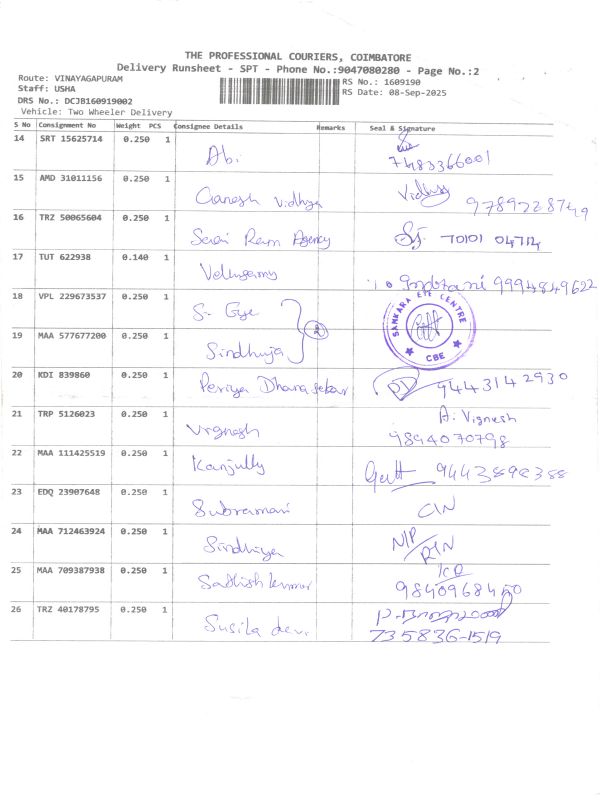 THE PROFESSIONAL COURIERS, COIMBATORE
Delivery Runsheet - SPT - Phone No.:9047080280 - Page No.:2
Route: VINAYAGAPURAM RS No.: 1609190
Staff: USHA RS Date: 08-Sep-2025
DRS No.: DCJB160919002
Vehicle: Two Wheeler Delivery
S No Consignment No Weight PCS Consignee Details Remarks Seal & Signature
14 SRT 15625714 0.250 1 Abi 7483366001
15 AMD 31011156 0.250 1 Ganesh Vidhya Vidhya 9789228749
16 TRZ 50065604 0.250 1 Sai Ram Agency 70101 04714
17 TUT 622938 0.140 1 9994849622
18 VPL 229673537 0.250 1 SANKARA EYE CENTRE CBE
19 MAA 577677200 0.250 1 Sindhuja
20 KDI 839860 0.250 1 Periya Dhanasekar 9443142930
21 TRP 5126023 0.250 1 Vignesh A. Vignesh
9894070798
22 MAA 111425519 0.250 1 9443898388
23 EDQ 23907648 0.250 1 Subramani
24 MAA 712463924 0.250 1 Sindhiya
25 MAA 709387938 0.250 1 Sathish kumar
26 TRZ 40178795 0.250 1 Susila devi
735836-1519